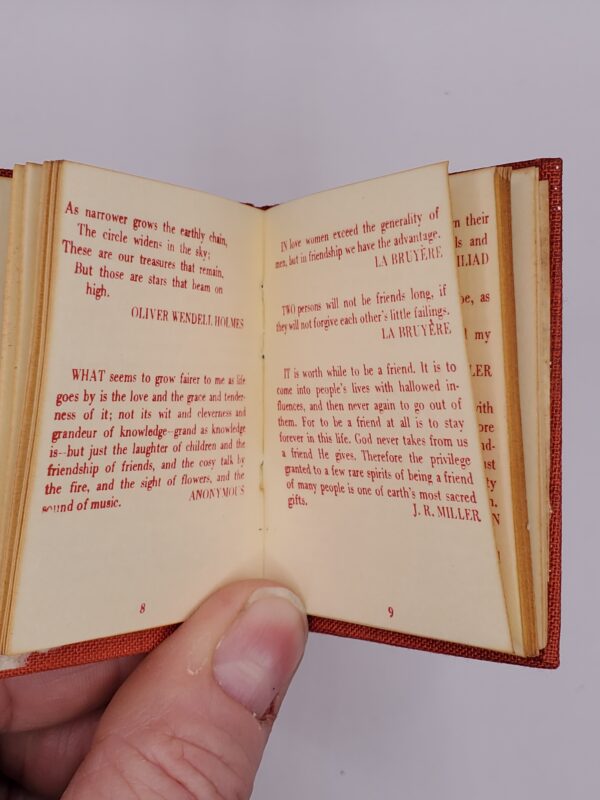 As narrower grows the earthly chain,
The circle widens in the sky;
These are our treasures that remain,
But those are stars that beam on
high.
OLIVER WENDELL HOLMES
WHAT seems to grow fairer to me as life
goes by is the love and the grace and tender-
ness of it; not its wit and cleverness and
grandeur of knowledge--grand as knowledge
is--but just the laughter of children and the
friendship of friends, and the cosy talk by
the fire, and the sight of flowers, and the
sound of music.
ANONYMOUS
8
IN love women exceed the generality of
men, but in friendship we have the advantage.
LA BRUYÈRE
TWO persons will not be friends long, if
they will not forgive each other's little failings.
LA BRUYÈRE
IT is worth while to be a friend. It is to
come into people's lives with hallowed in-
fluences, and then never again to go out of
them. For to be a friend at all is to stay
forever in this life. God never takes from us
a friend He gives. Therefore the privilege
granted to a few rare spirits of being a friend
of many people is one of earth's most sacred
gifts.
J. R. MILLER
9
their
and
as
my